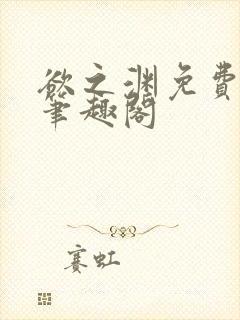 欲之渊免费
笔趣阁
赛虹